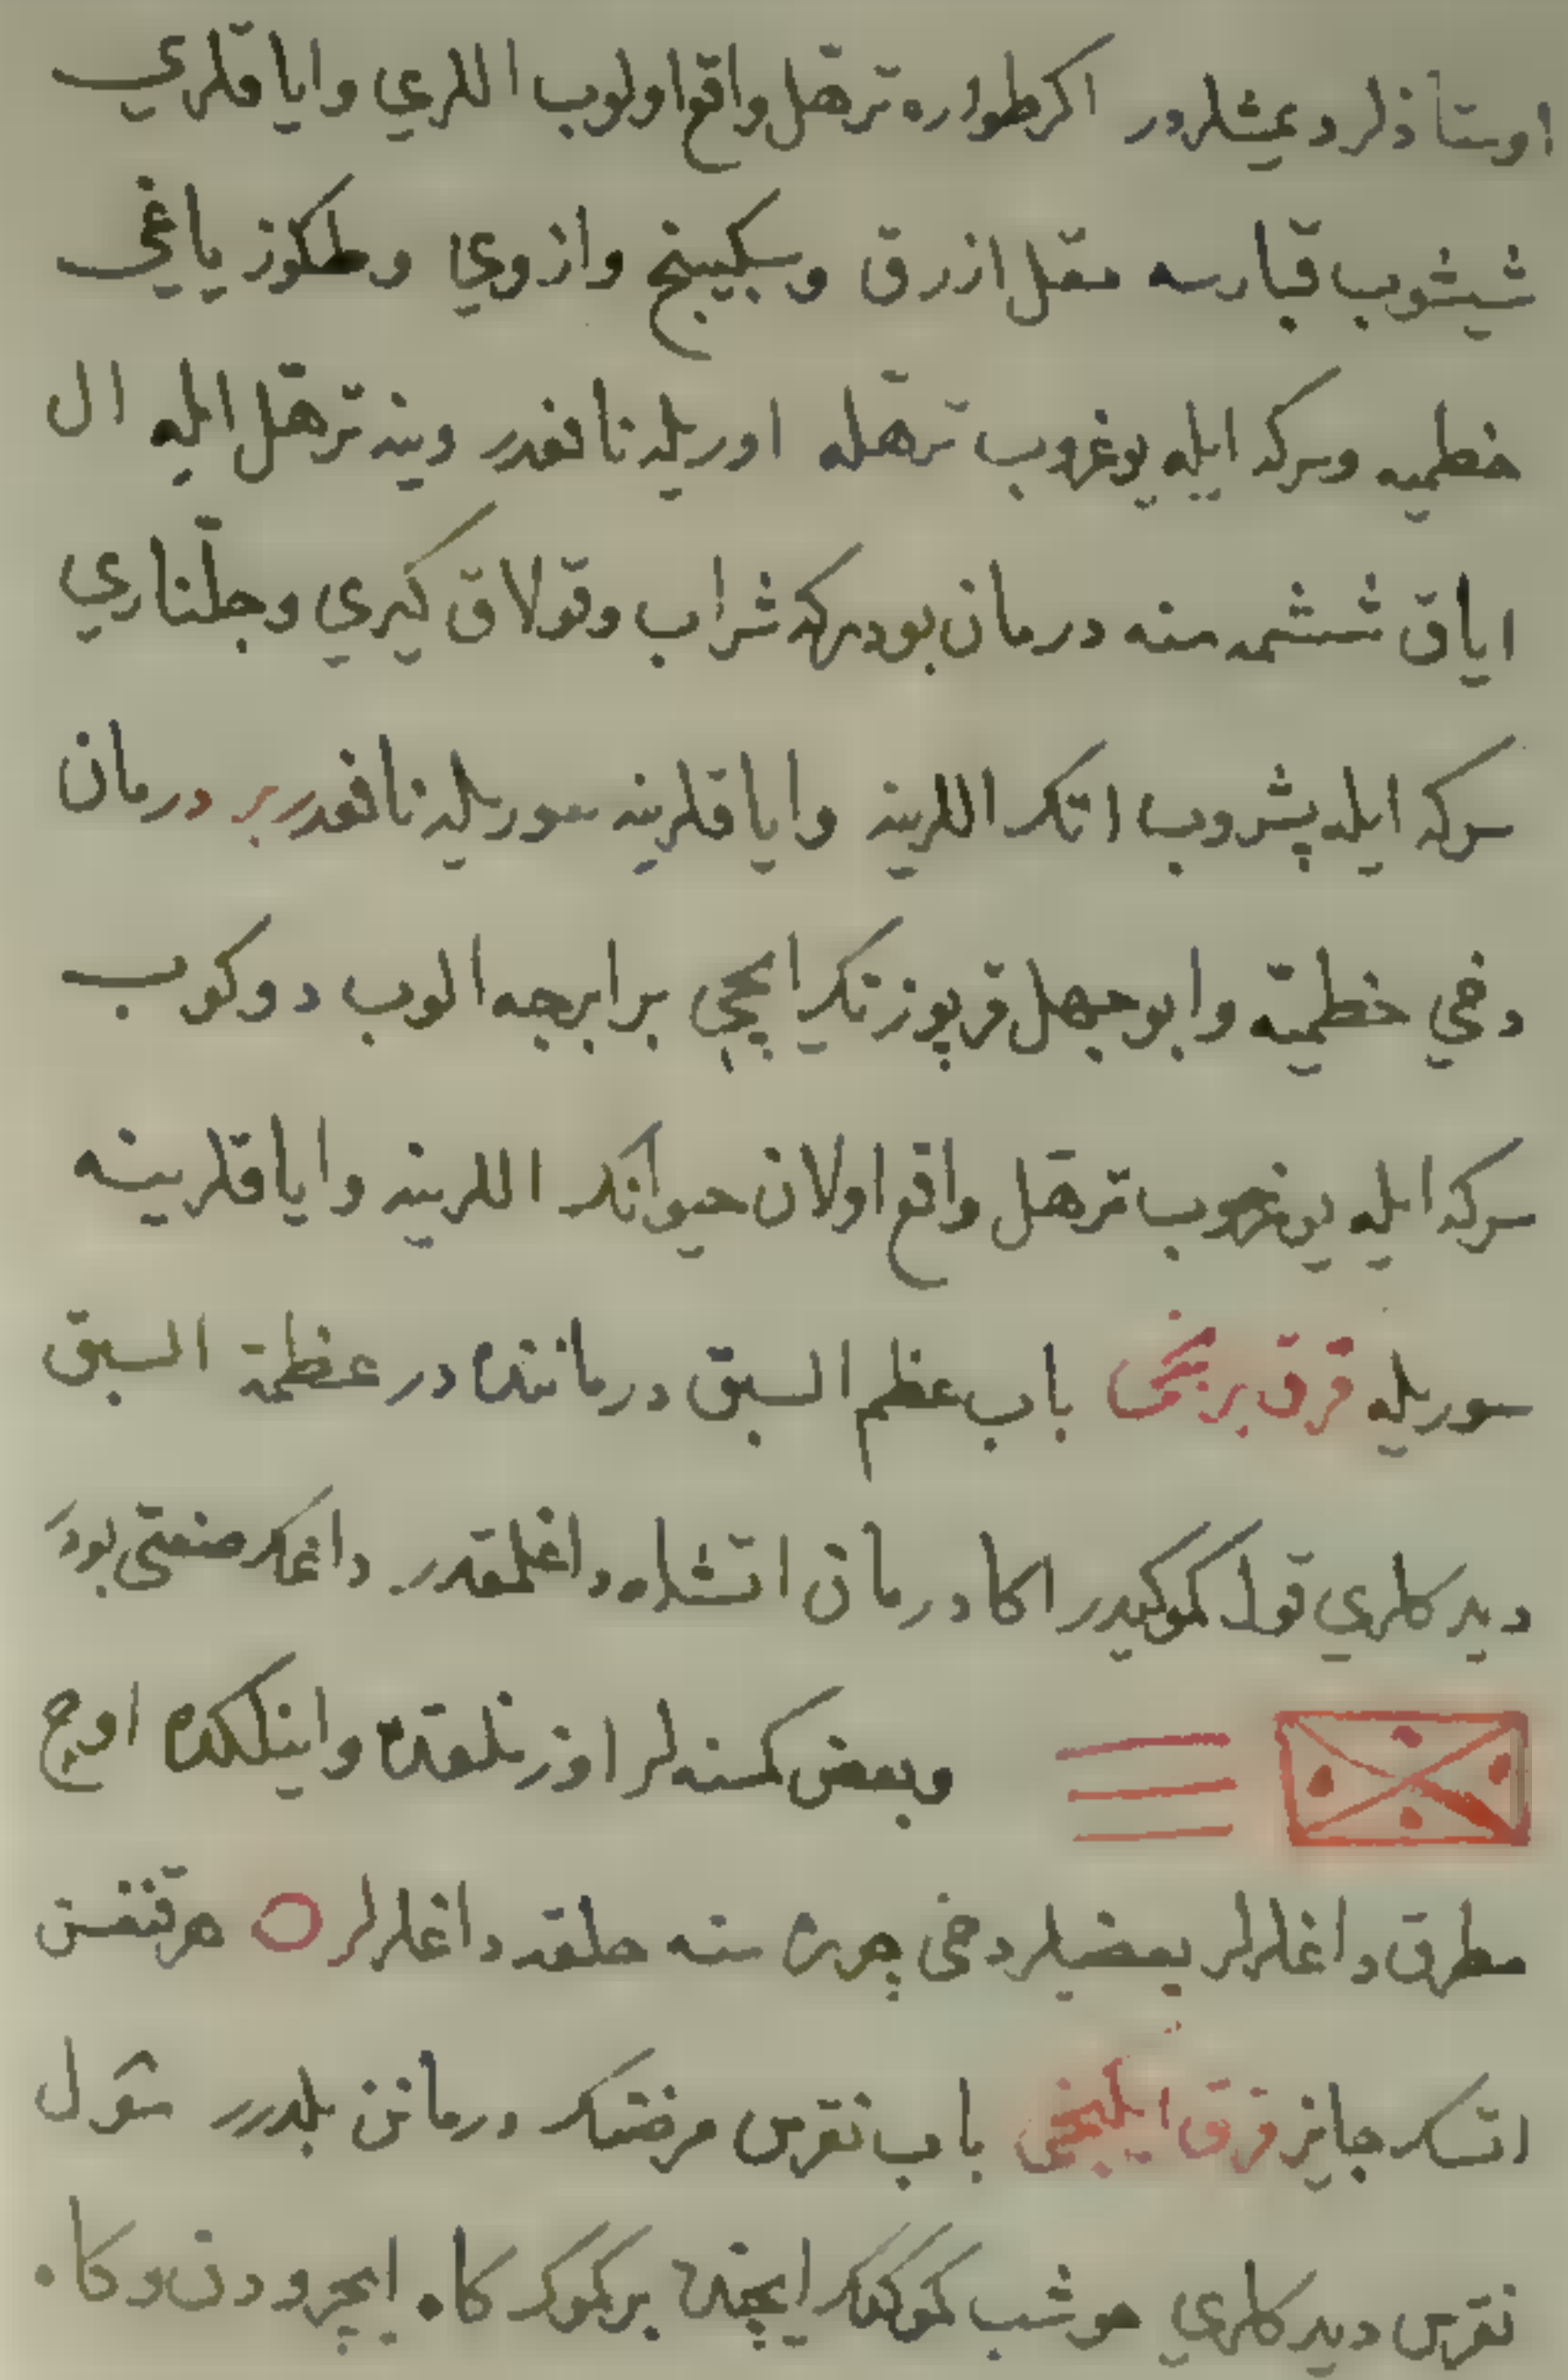 اوستاذلر ديمشلردر اكر طواره ترهل واقع اولوب اللري واياقلري
ششوب قبارسه مقل ازرق وسكبينج وازوي وطكوز ياغي
خطميه وسركه ايله يوغروب ترهله اوريله نافعدر وينه ترهل ايله ال
اياق ششمه سنه درمان بودركه شراب وقولاق كيري وجلناري
سركه ايله پشروب اتك اللرينه واياقلرينه سوريله نافعدر بر درمان
دخي خطميه وابوجهل قرپوزنك ايچي برابرجه الوب دوكوب
سركه ايله يوغروب ترهل واقع اولان حيوانك اللرينه واياقلرينه
سوريله قرق برنجى باب عظم السبق درماننده در عظمة السبق
ديدكلري قول كموكيدر اكا درمان اتشله داغلمقدر داغك صنعتى بودر
وبعض كمسنه لر اوزنلقده واينلكده اوج
مطرق داغلرلر بعضيلر دخى چوره سنه حلقه داغلرلر هرقنغسن
اتسك جايز قرق ايكنجى باب نقرس مرضنك درمانن بلدرر شول
نقرس ديدكلري حوشب كموكنك ايچنده بر كموك كاه ايچرودن وكاه